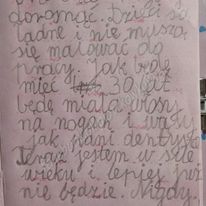 dorosnąć. Dzieci są
ładne i nie muszą
się malować do
pracy. Jak będę
mieć 30 lat
będę miała włosy
na nogach i wąsy
jak pani dentyst
Teraz jestem w sile
wieku i lepiej już
nie będzie. Nigdy.